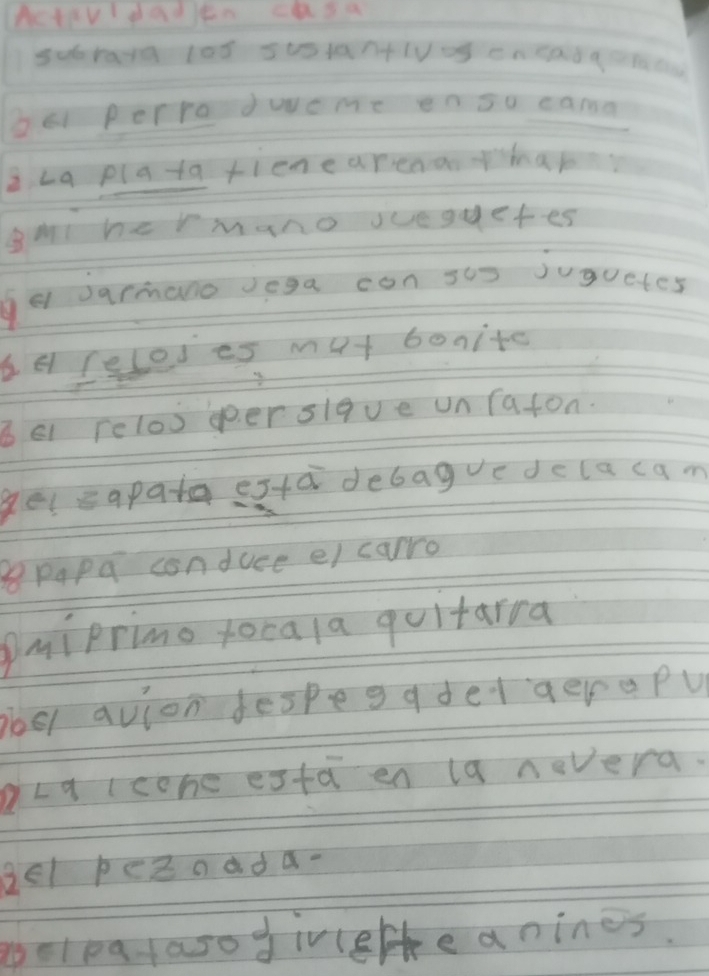 Actividad en casa
subraya los sustantivos en cada
1 el perro dueme en su cama
2 La playa tiene arena y mar
3 mi hermano jueguetes
4 el jarmano jega con sus juguetes
5 el reloj es muy bonito
6 el reloj persigue un raton.
7 el zapata está debague de la cam
8 papá conduce el carro
9 mi primo toca la guitarra
10 el avión despega del aeropu
11 La leche está en la nevera.
12 el pez nada.
13 el payaso divierte a niños.